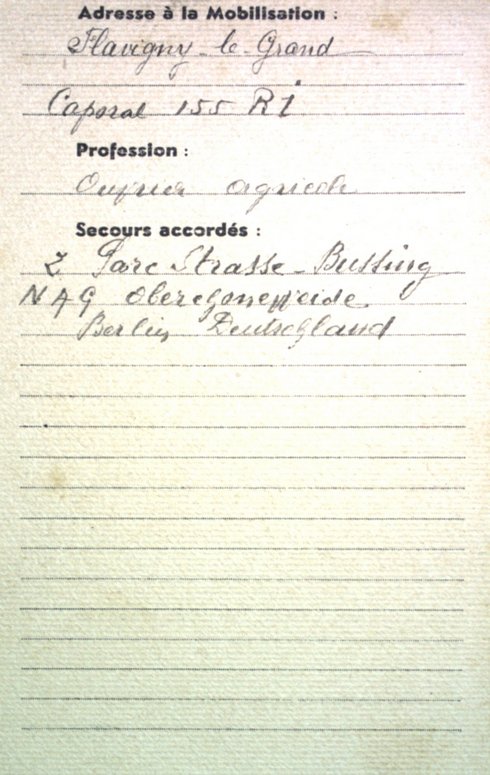 Adresse à la Mobilisation :
Flavigny-le-Grand
Caporal 155 RI
Profession :
Ouvrier agricole
Secours accordés :
2 Parc Strasse - Bussing
NAG Oberschoneweide
Berlin Deutschland